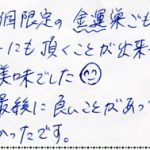 個限定の金運巣ごも
にも頂くことが出来
美味でした
最後に良いことがあっ
かったです。